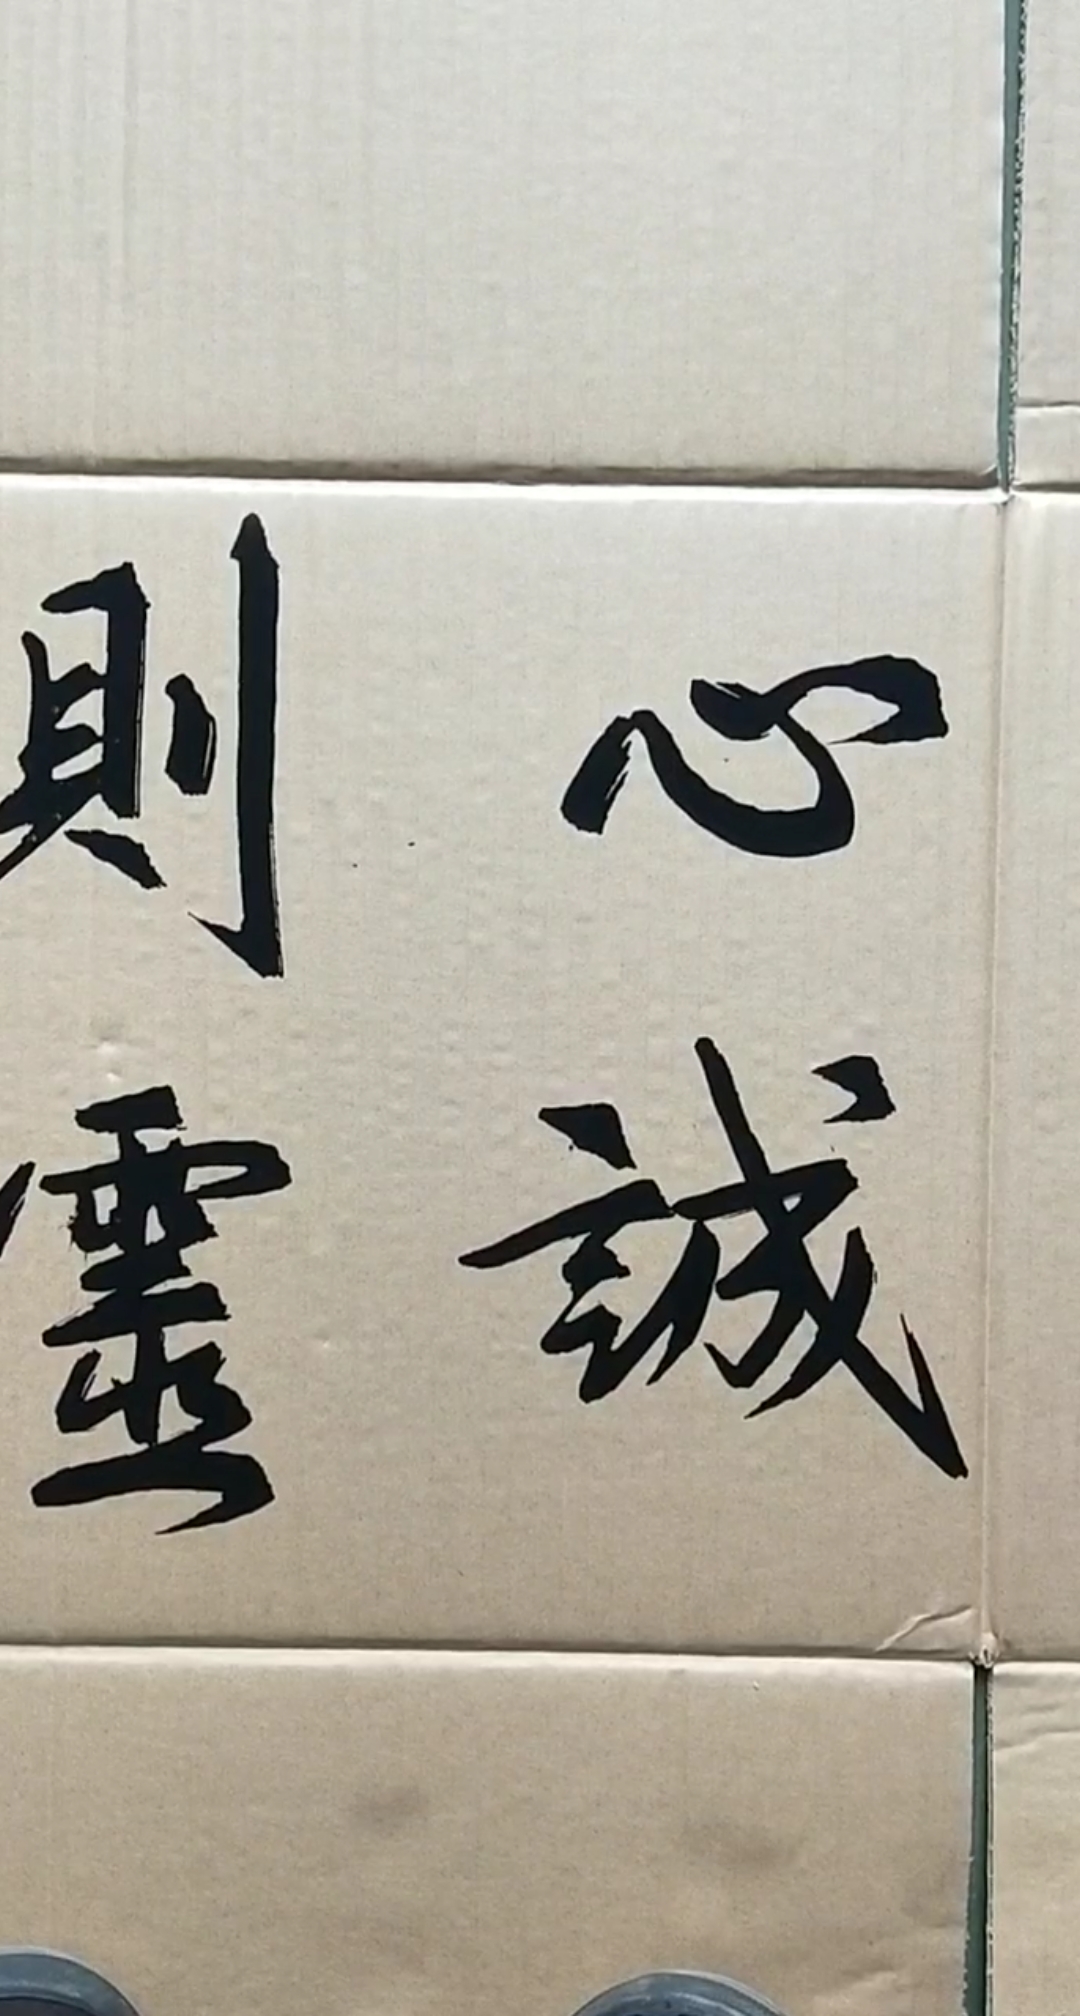 心誠
則靈